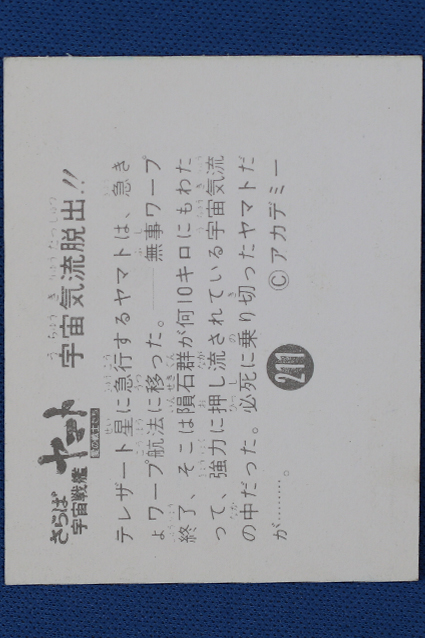 さらば
宇宙戦艦
ヤマト
愛の戦士たち
宇宙気流脱出!!
テレザート星に急行するヤマトは、急き
ょワープ航法に移った。――無事ワープ
終了、そこは隕石群が何10キロにもわた
って、強力に押し流されている宇宙気流
の中だった。必死に乗り切ったヤマトだ
が………。
211
©アカデミー